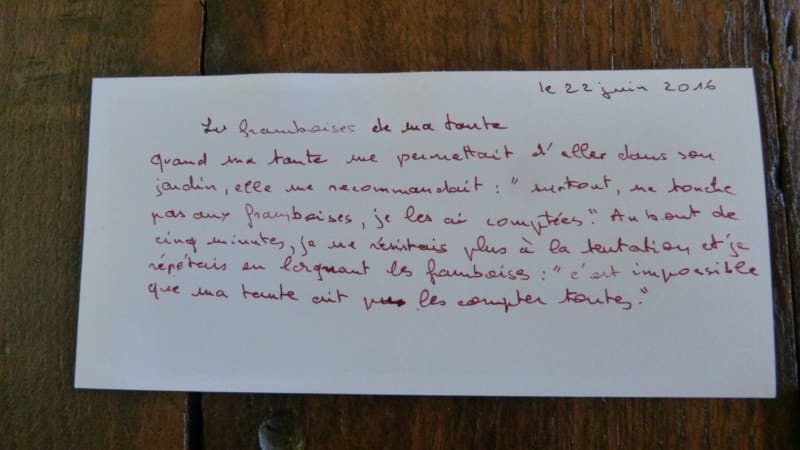 le 22 juin 2016
Les framboises de ma tante
Quand ma tante me permettait d'aller dans son
jardin, elle me recommandait : "surtout, ne touche
pas aux framboises, je les ai comptées". Au bout de
cinq minutes, je ne résistais plus à la tentation et je
répétais en lorgnant les famboises : "c'est impossible
que ma tante ait pu les compter toutes."